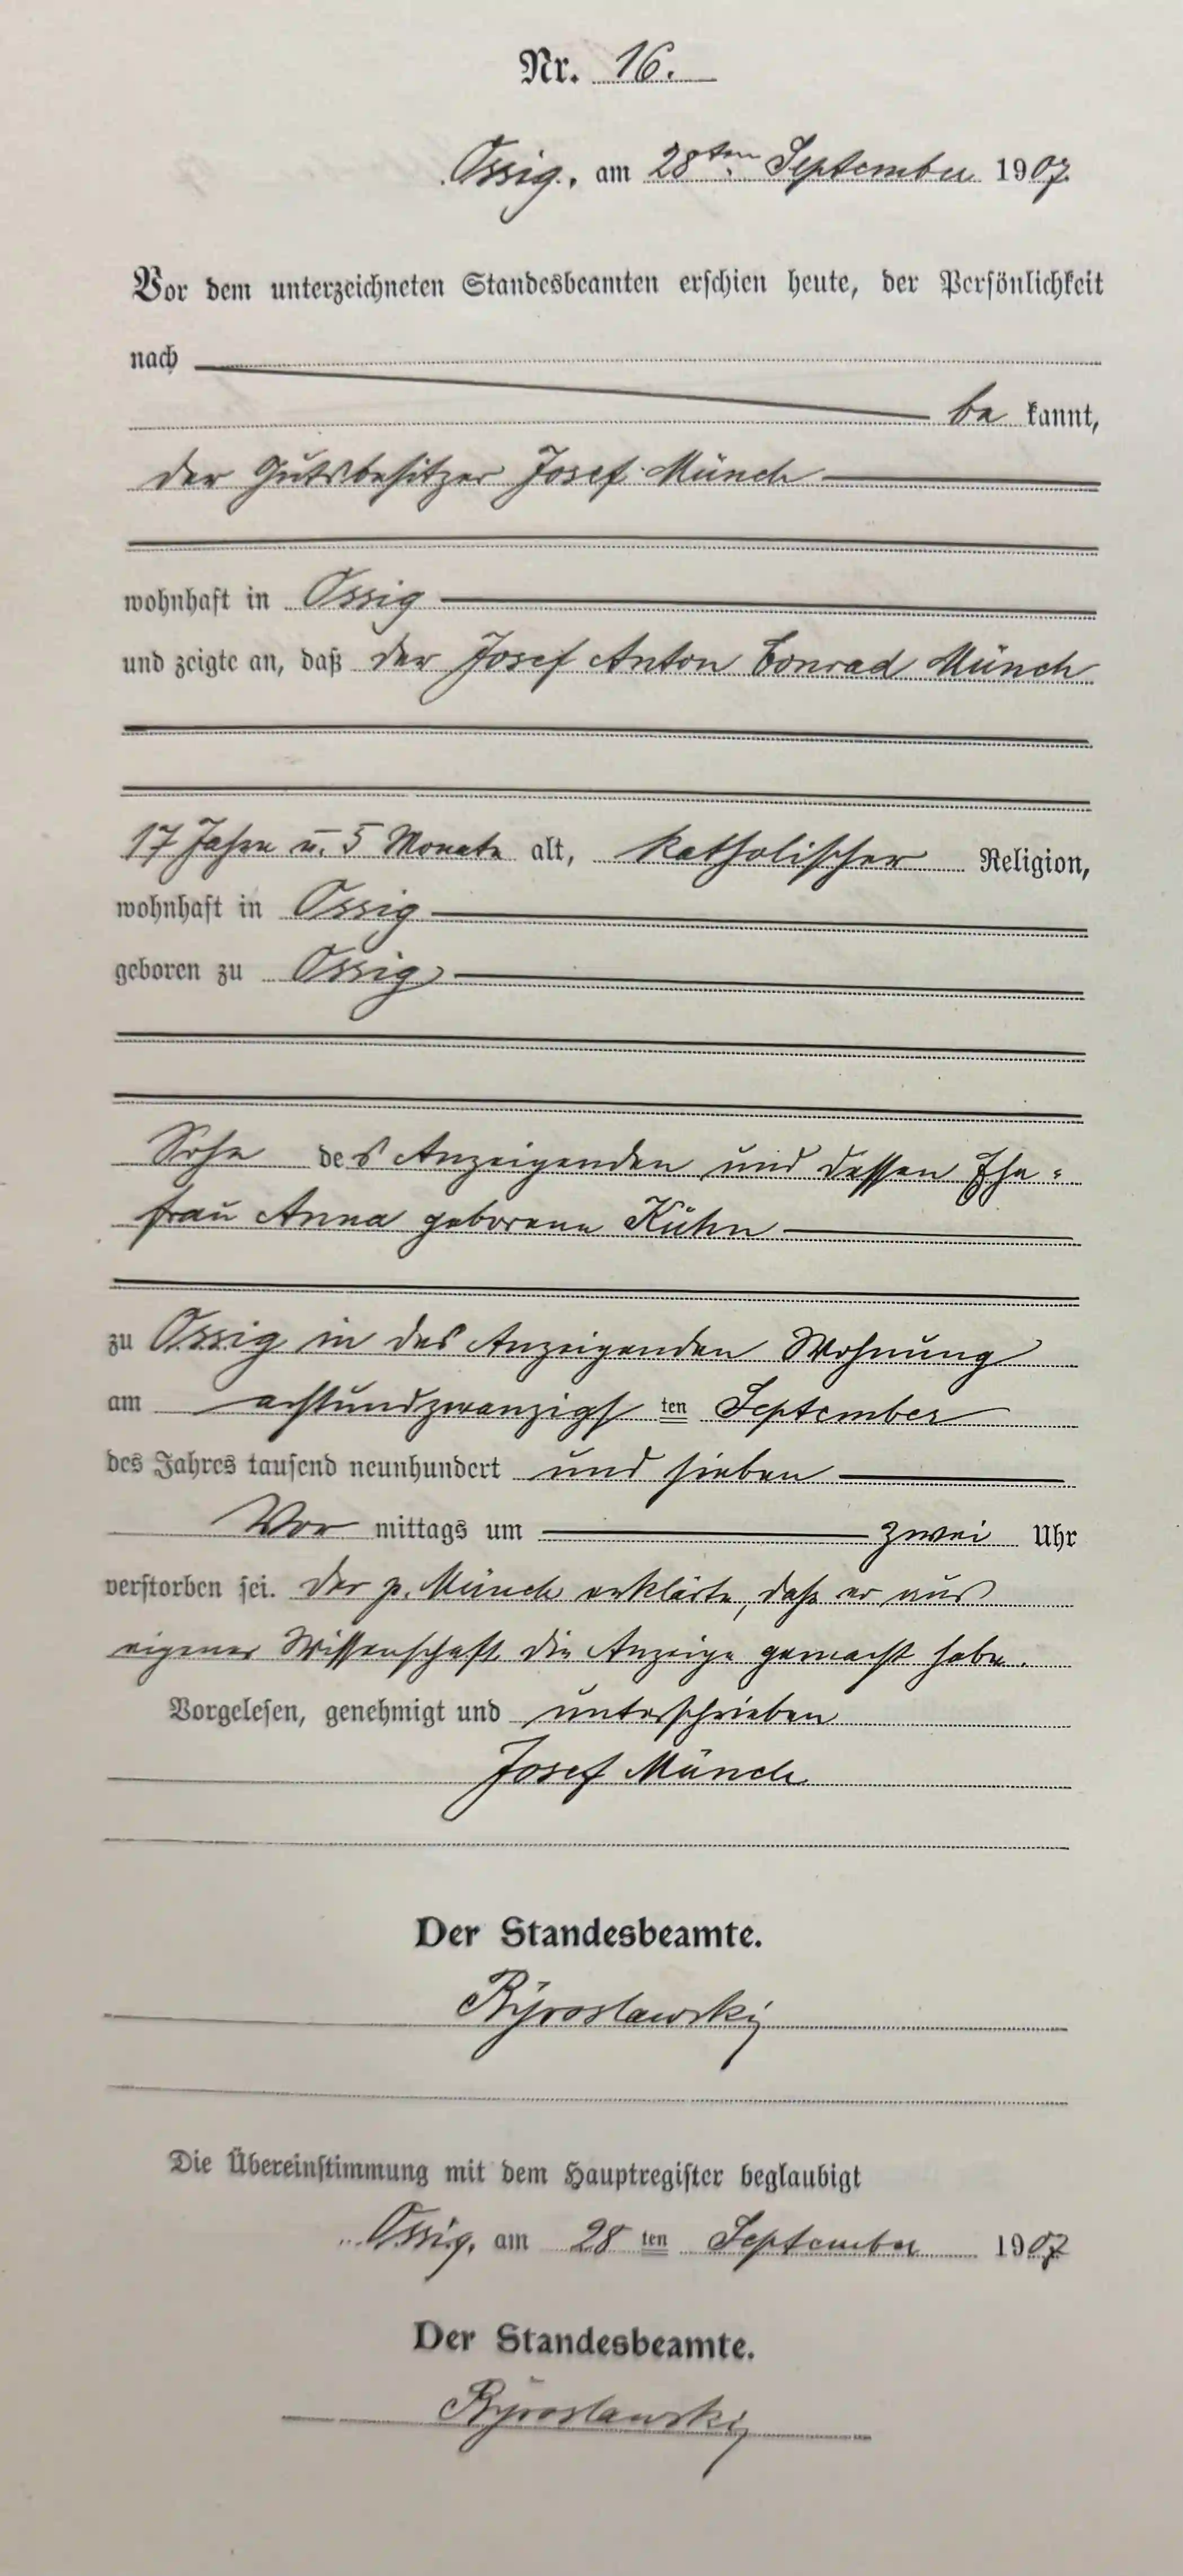 Nr. 16.
Ossig, am 28ten September 1907
Vor dem unterzeichneten Standesbeamten erschien heute, der Persönlichkeit
nach
be kannt,
der Gutsbesitzer Josef Münch
wohnhaft in Ossig
und zeigte an, daß der Josef Anton Conrad Münch
17 Jahre u. 5 Monate alt, katholischer Religion,
wohnhaft in Ossig
geboren zu Ossig
Sohn des Anzeigenden und dessen Ehe-
frau Anna geborene Kühn
zu Ossig in des Anzeigenden Wohnung
am achtundzwanzigsten September
des Jahres tausend neunhundert und sieben
Vor mittags um zwei Uhr
verstorben sei. Der p. Münch erklärte, daß er aus
eigener Wissenschaft die Anzeige gemacht habe.
Vorgelesen, genehmigt und unterschrieben
Josef Münch
Der Standesbeamte.
Die Übereinstimmung mit dem Hauptregister beglaubigt
Ossig, am 28 ten September 1907
Der Standesbeamte.